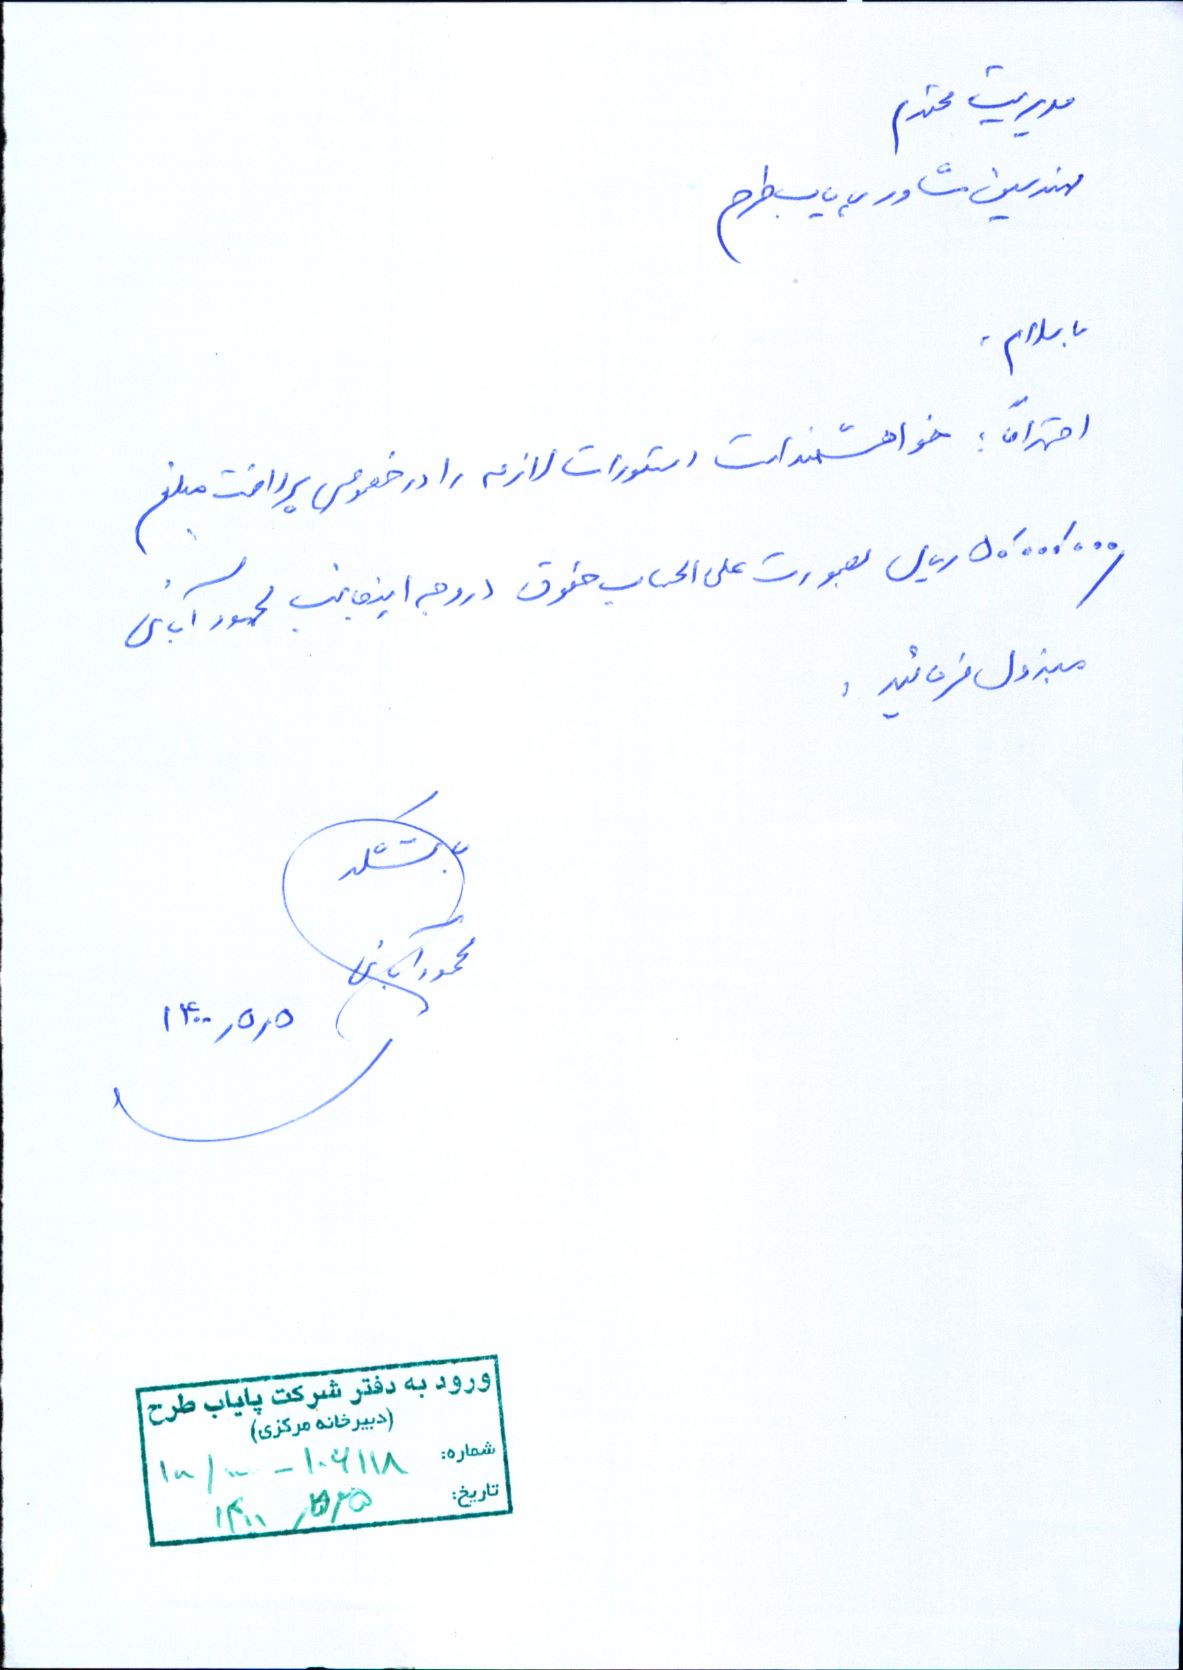 مدیریت محترم
مهندسین مشاور پایاب طرح
با سلام،
احتراماً؛ خواهشمند است دستورات لازمه را در خصوص پرداخت مبلغ
۵۰/۰۰۰/۰۰۰ ریال بصورت علی الحساب حقوق در وجه اینجانب محمود
مبذول فرمائید.
با تشکر
محمود
۱۴۰۰/۵/۵
ورود به دفتر شرکت پایاب طرح
(دبیرخانه مرکزی)
شماره:
تاریخ: